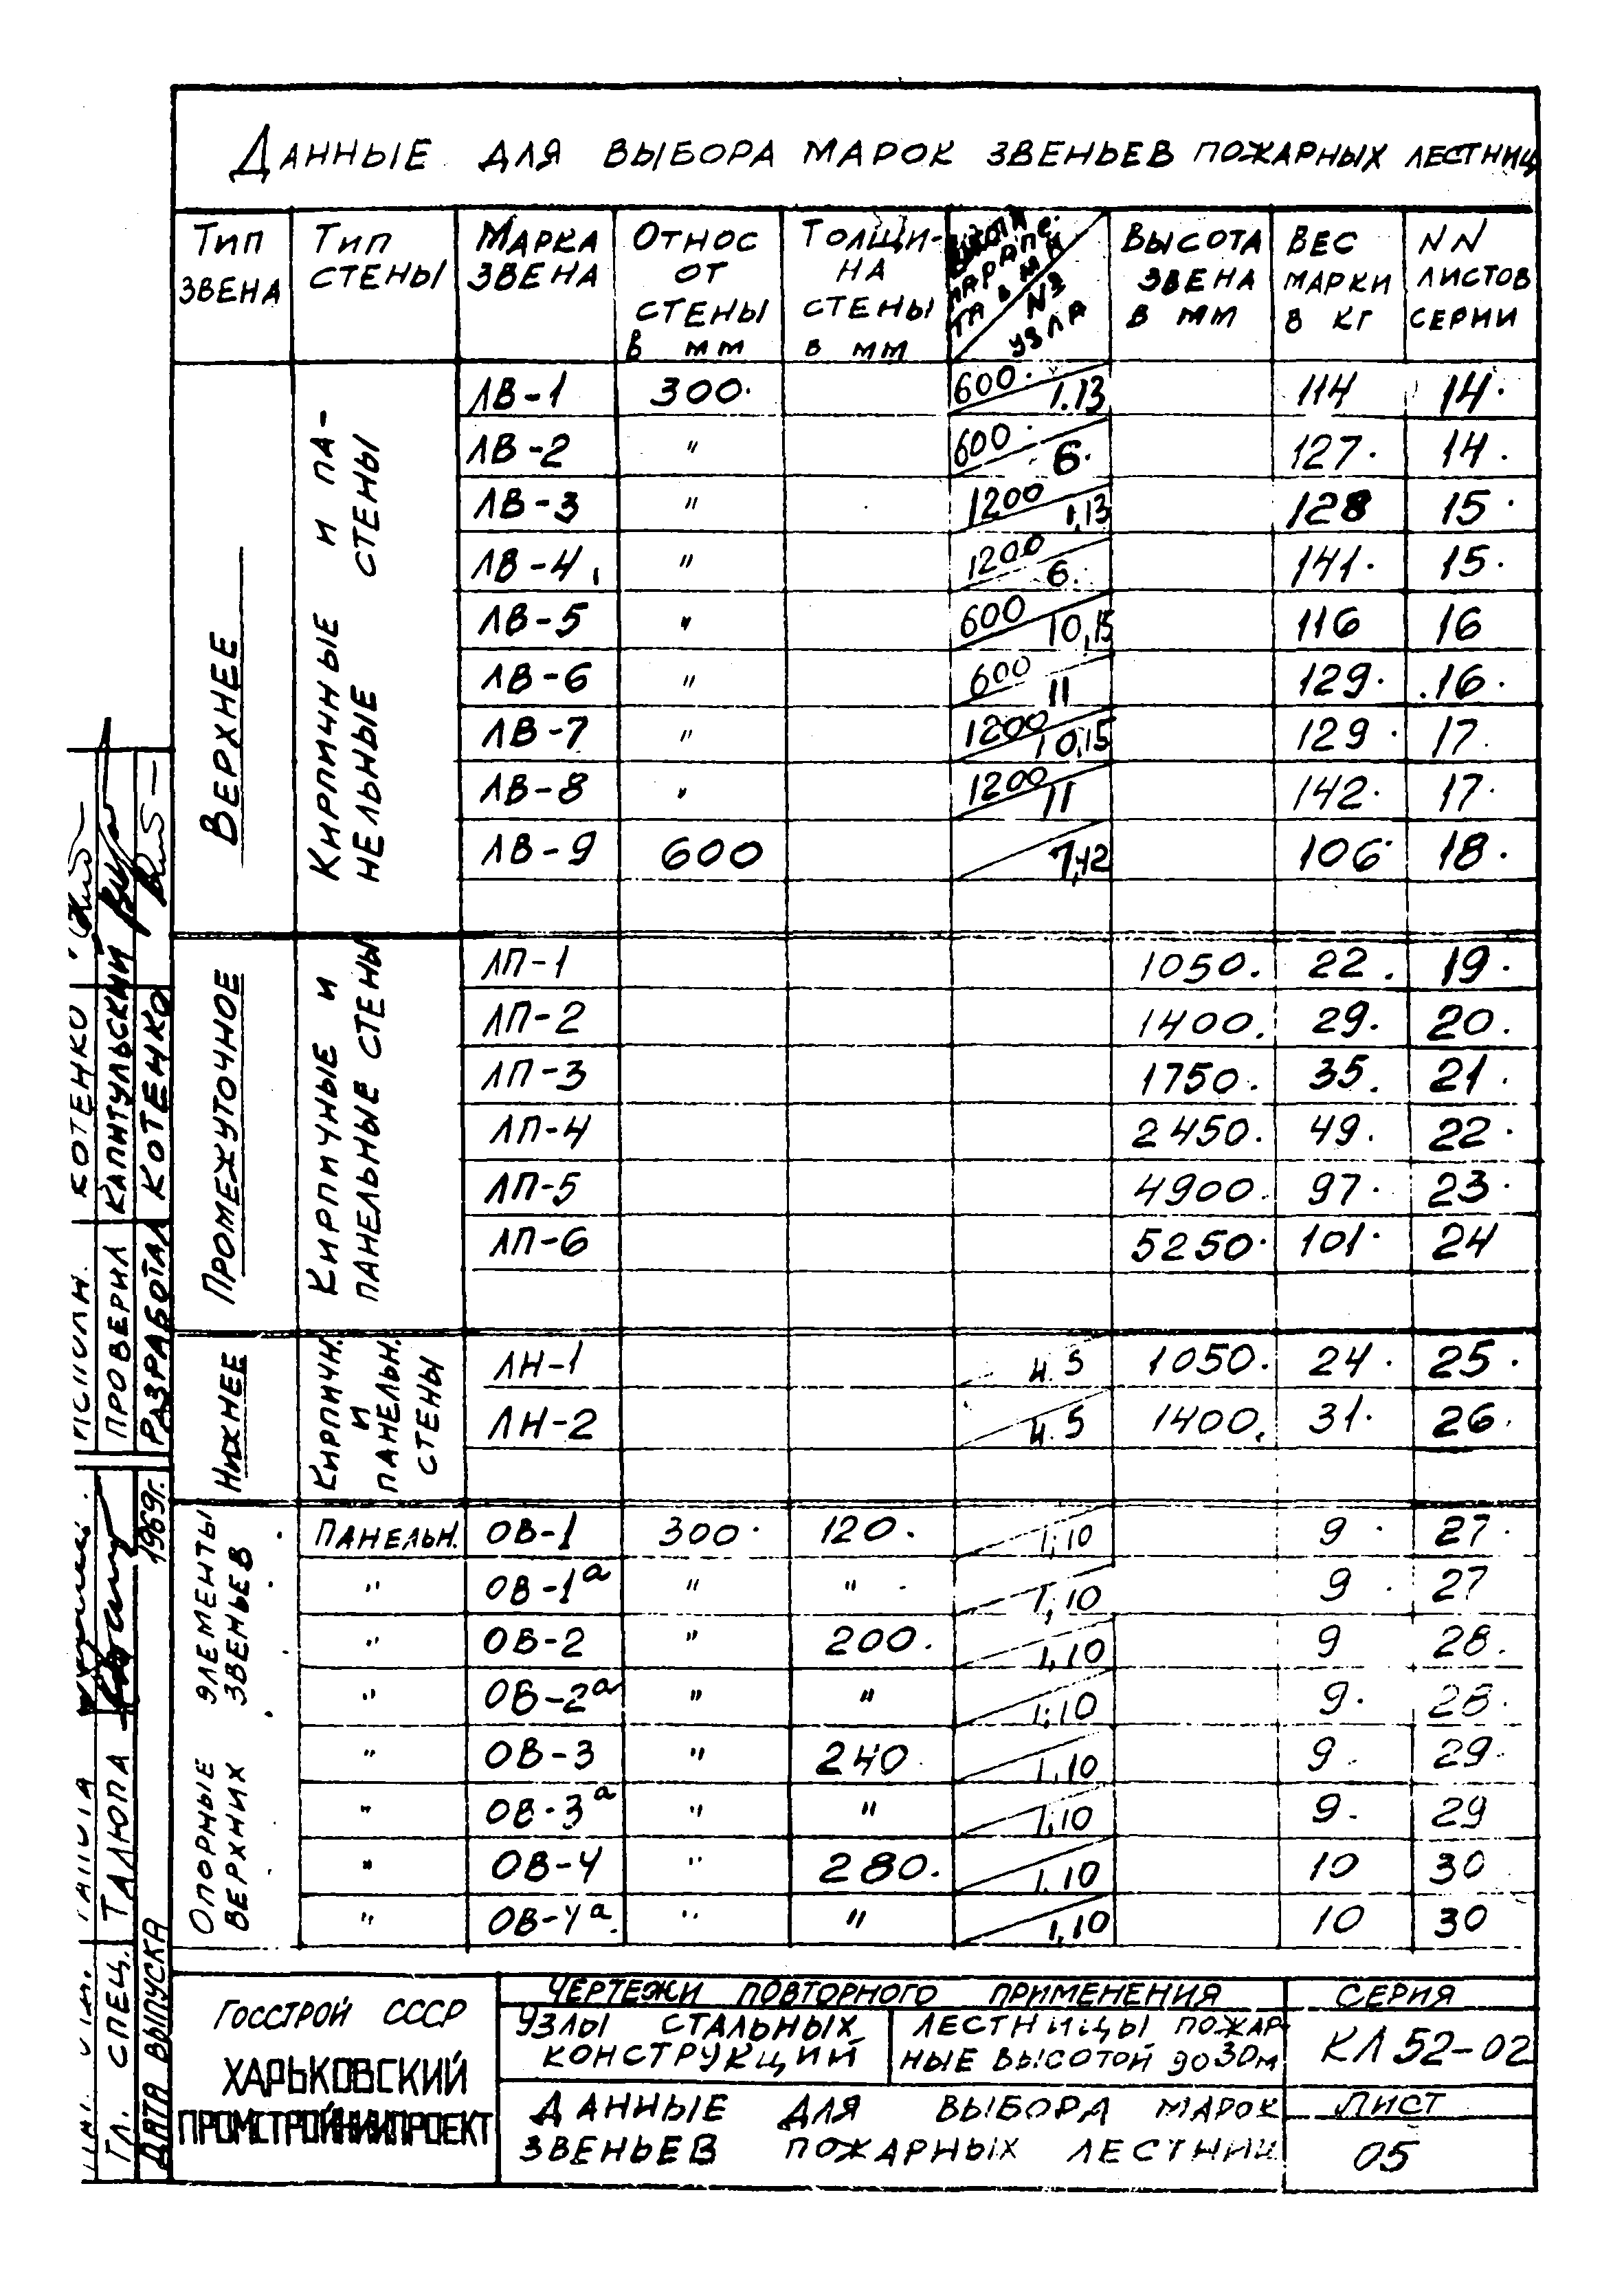 Данные для выбора марок звеньев пожарных лестниц
Тип звена | Тип стены | Марка звена | Относ от стены в мм | Толщи-на стены в мм | Высота парапе-та в мм / NЯ узла | Высота звена в мм | Вес марки в кг | NN листов серии
Верхнее | Кирпичные и па-нельные стены
ЛВ-1 | 300. | 600. / 1.13 | 114 | 14.
ЛВ-2 | " | 600. / 6. | 127. | 14.
ЛВ-3 | " | 1200 / 1,13 | 128 | 15.
ЛВ-4 | " | 1200 / 6. | 141. | 15.
ЛВ-5 | " | 600 / 10,15 | 116 | 16
ЛВ-6 | " | 600 / 11 | 129. | 16.
ЛВ-7 | " | 1200 / 10,15 | 129. | 17.
ЛВ-8 | " | 1200 / 11 | 142. | 17.
ЛВ-9 | 600 | / 7,12 | 106 | 18.
Промежуточное | Кирпичные и панельные стены
ЛП-1 | 1050. | 22. | 19.
ЛП-2 | 1400. | 29. | 20.
ЛП-3 | 1750. | 35. | 21.
ЛП-4 | 2450. | 49. | 22.
ЛП-5 | 4900. | 97. | 23.
ЛП-6 | 5250. | 101. | 24
Нижнее | Кирпичн. и панельн. стены
ЛН-1 | / 4. 5 | 1050. | 24. | 25.
ЛН-2 | / 4. 5 | 1400. | 31. | 26.
Опорные элементы верхних звеньев
Панельн. | ОВ-1 | 300. | 120. | / 1,10 | 9. | 27.
" | ОВ-1а | " | " | / 1,10 | 9. | 27
" | ОВ-2 | " | 200. | / 1,10 | 9 | 28.
" | ОВ-2а | " | " | / 1,10 | 9. | 28.
" | ОВ-3 | " | 240. | / 1,10 | 9. | 29.
" | ОВ-3а | " | " | / 1,10 | 9. | 29
" | ОВ-4 | " | 280. | / 1,10 | 10 | 30
" | ОВ-4а | " | " | / 1,10 | 10 | 30
Исполн. Котенко
Проверил Капитульский
Разработал Котенко
Гл. спец. Талюпа
Дата выпуска 1969г.
Госстрой СССР
Харьковский
Промстройниипроект
Чертежи повторного применения
Узлы стальных конструкций
Лестницы пожар-ные высотой до 30м
Данные для выбора марок
звеньев пожарных лестниц
Серия
КЛ 52-02
Лист
05